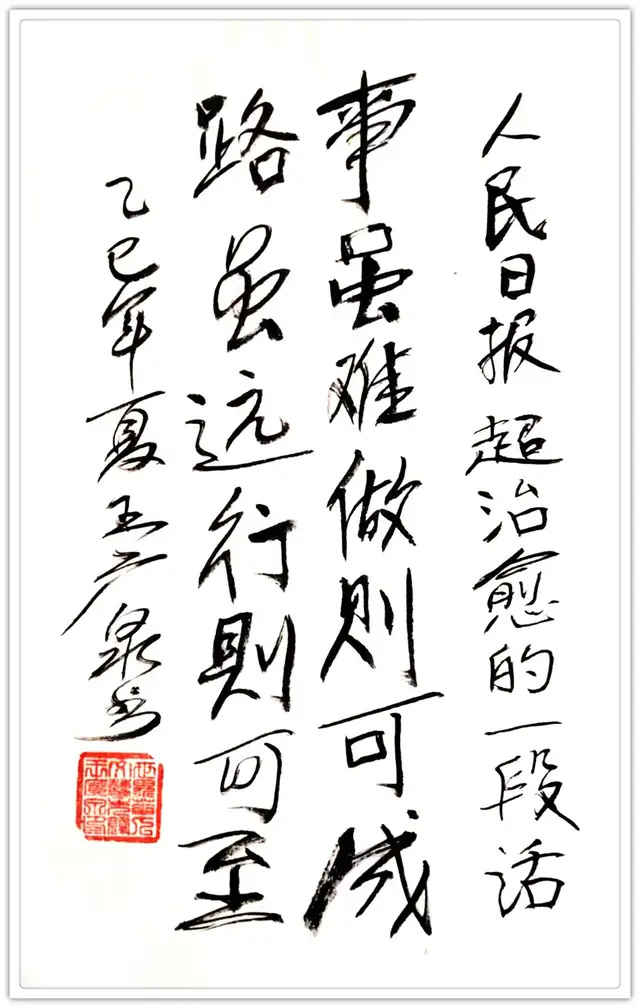 人民日报超治愈的一段话
事虽难做则可成
路虽远行则可至
乙巳年夏王广泉书